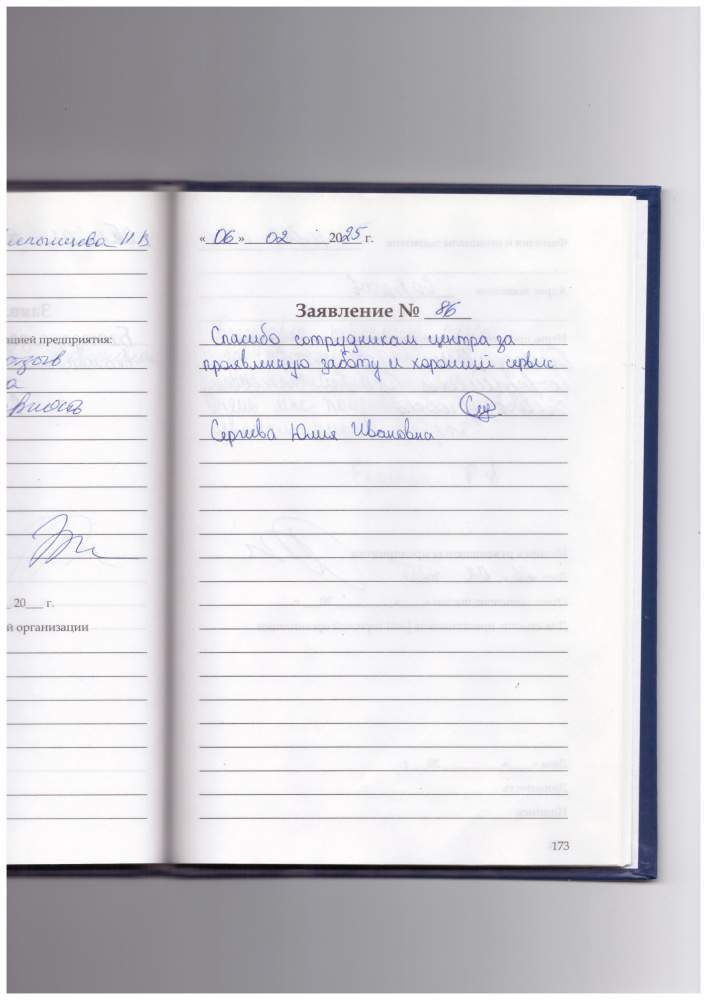 И.В.
ацией предприятия:
отзыв
20___ г.
й организации
« 06 » 02 2025 г.
Заявление № 86
Спасибо сотрудникам центра за
проявленную заботу и хороший сервис
Сергеева Юлия Ивановна
173